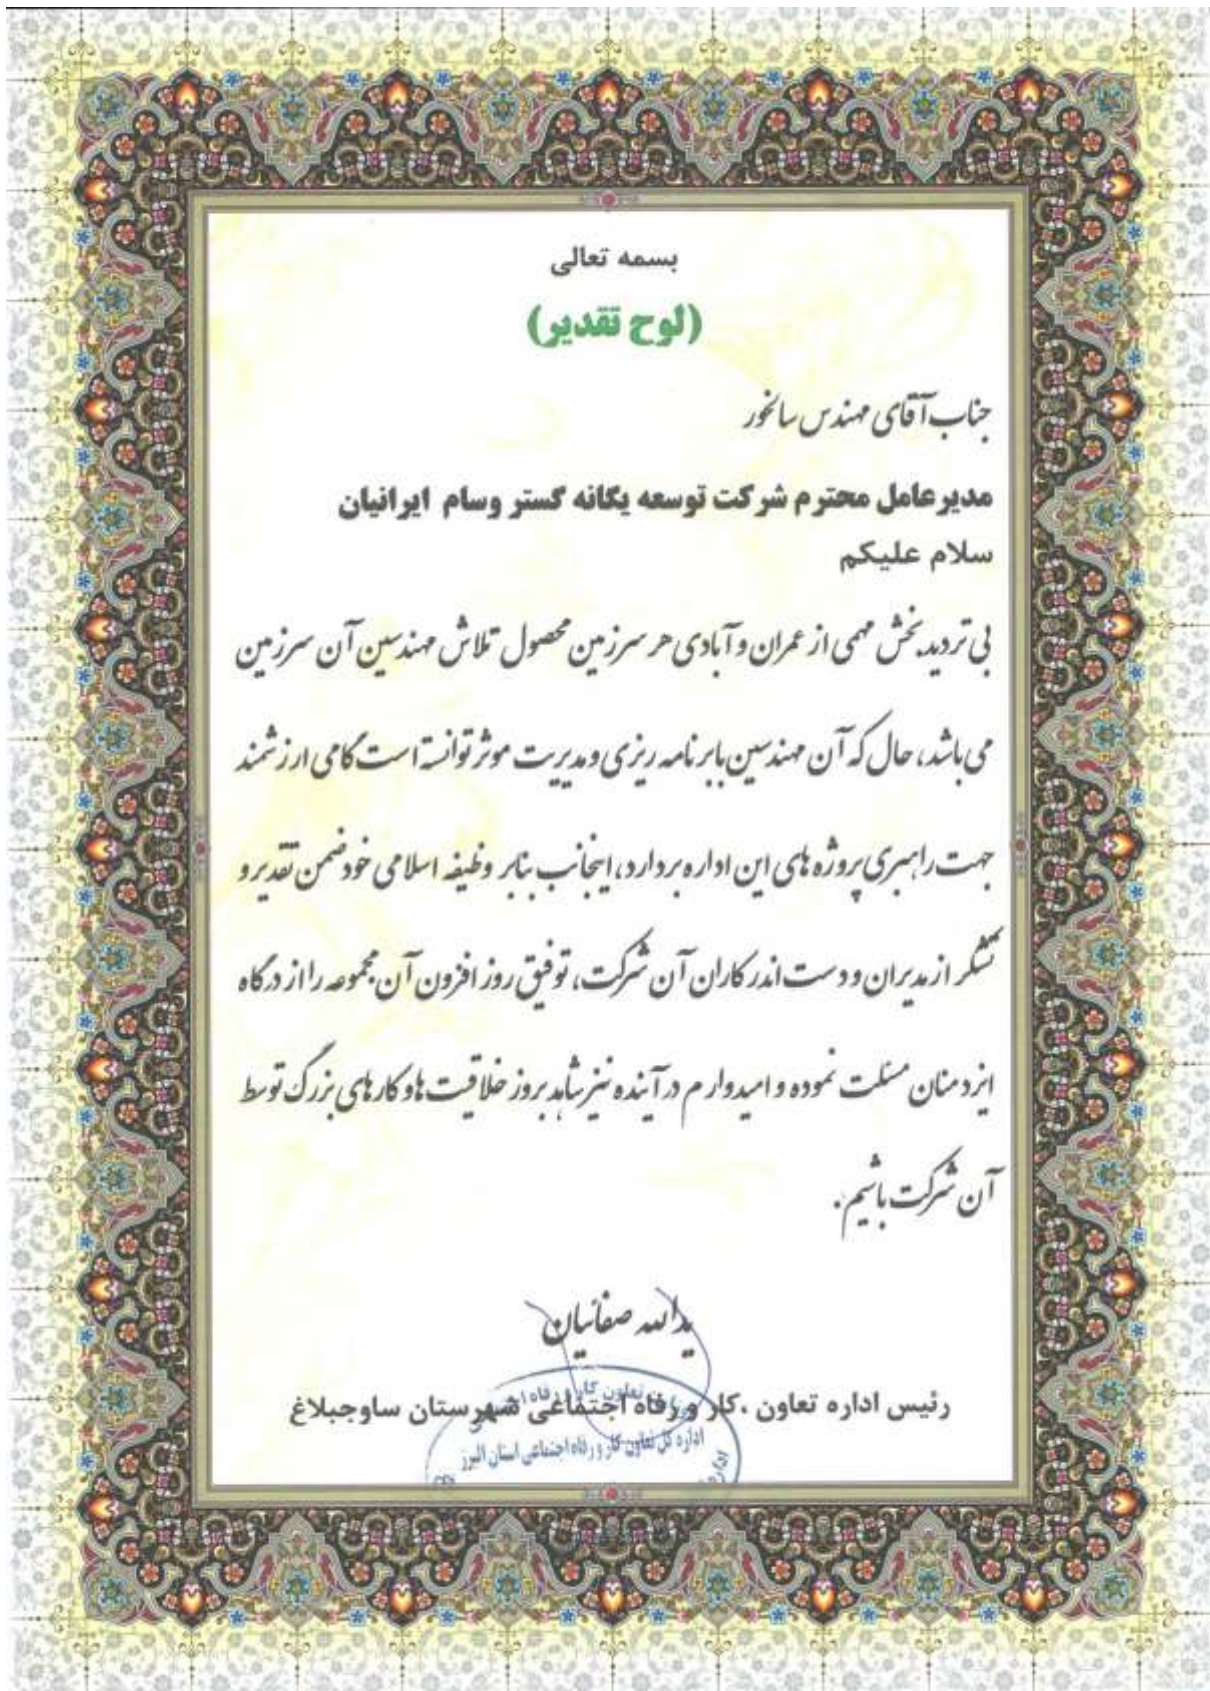 بسمه تعالی
(لوح تقدیر)
جناب آقای مهندس سانخور
مدیرعامل محترم شرکت توسعه یگانه گستر وسام ایرانیان
سلام علیکم
بی تردید بخش مهمی از عمران و آبادی هر سرزمین محصول تلاش مهندسین آن سرزمین
می باشد، حال که آن مهندسین با برنامه ریزی و مدیریت موثر توانسته است گامی ارزشمند
جهت راهبری پروژه های این اداره بردارد، اینجانب بنابر وظیفه اسلامی خود ضمن تقدیر و
تشکر از مدیران و دست اندرکاران آن شرکت، توفیق روز افزون آن مجموعه را از درگاه
ایزد منان مسئلت نموده و امیدوارم در آینده نیز شاهد بروز خلاقیت ها و کارهای بزرگ توسط
آن شرکت باشیم.
یدالله صفائیان
رئیس اداره تعاون ،کار و رفاه اجتماعی شهرستان ساوجبلاغ
تعاون کار و رفاه
اداره کل تعاون کار و رفاه اجتماعی استان البرز